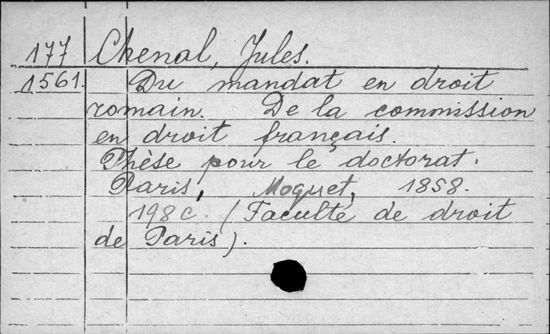 177 Chenal, Jules.
1561. Du mandat en droit
romain. De la commission
en droit français.
Thèse pour le doctorat.
Paris, Moquet, 1858.
198 c. (Faculté de droit
de Paris).